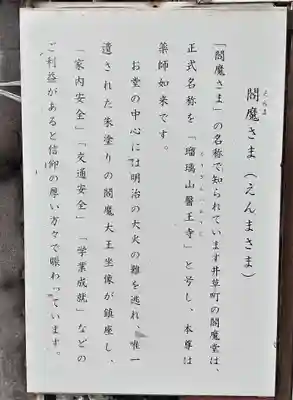 閻魔さま(えんまさま)
「閻魔さま」の名称で知られています井草町の閻魔堂は、
正式名称を「瑠璃山醫王寺」と号し、本尊は
薬師如来です。
お堂の中心には明治の大火の難を逃れ、唯一
遺された朱塗りの閻魔大王坐像が鎮座し、
「家内安全」「交通安全」「学業成就」などの
ご利益があると信仰の厚い方々で賑わっています。